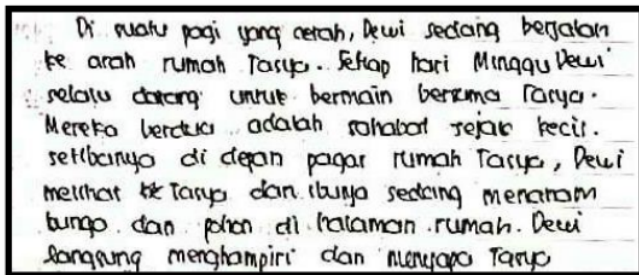 Di suatu pagi yang cerah, Dewi sedang berjalan
ke arah rumah Tasya. Setiap hari Minggu Dewi
selalu datang untuk bermain bersama Tasya.
Mereka berdua adalah sahabat sejak kecil.
setibanya di depan pagar rumah Tasya, Dewi
melihat Tasya dan ibunya sedang menanam
bunga dan pohon di halaman rumah. Dewi
langsung menghampiri dan menyapa Tasya